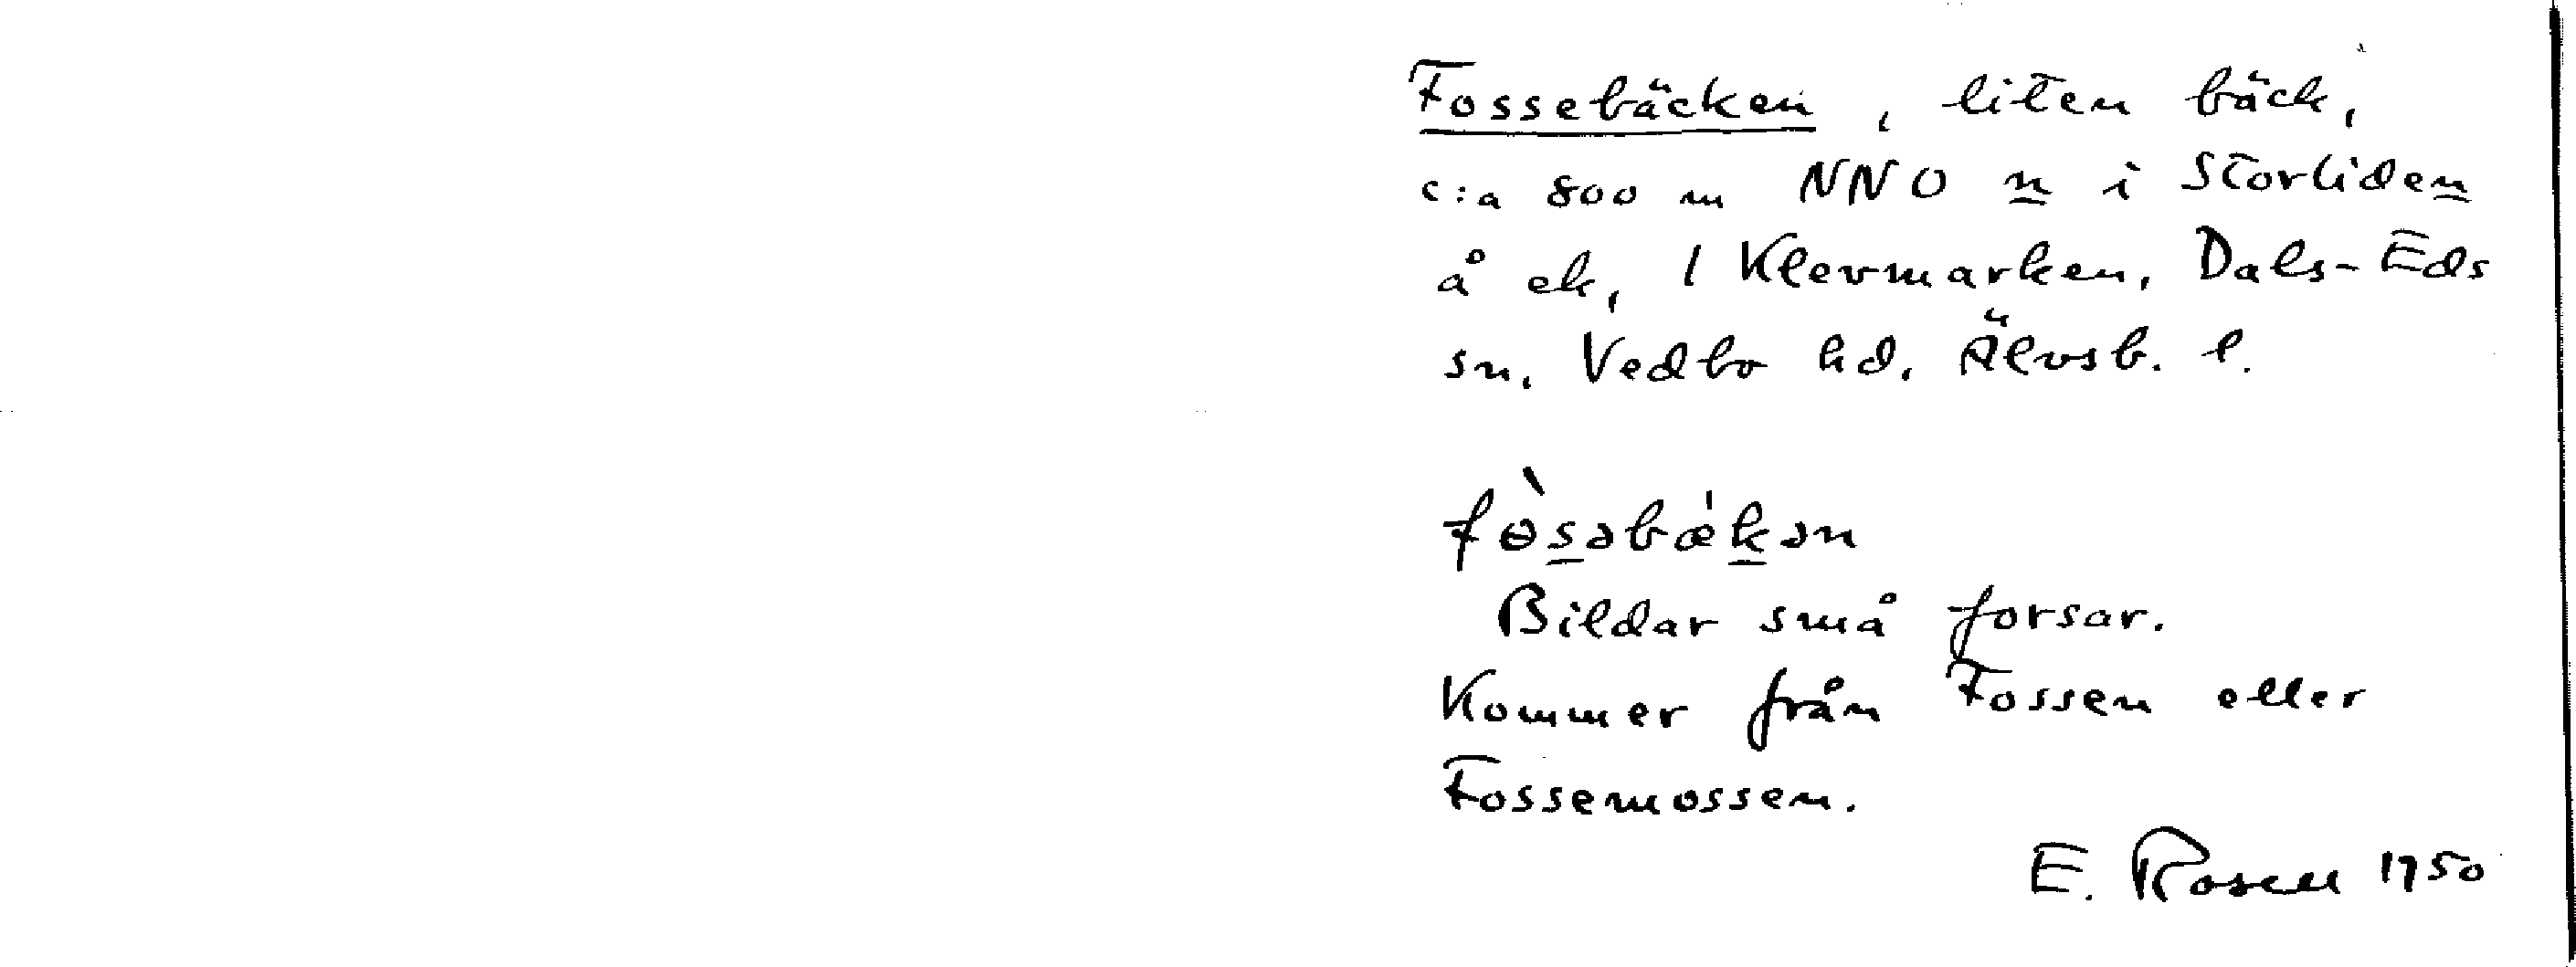 Fossebäcken, liten bäck,
c:a 800 m NNO n i Storliden
å ek, 1 Klevmarken, Dals-Eds
sn. Vedbo hd. Älvsb. l.
fɵ̀səbæ̍kən
Bildar små forsar.
Kommer från Fossen eller
Fossemossen.
E. Rosell 1950